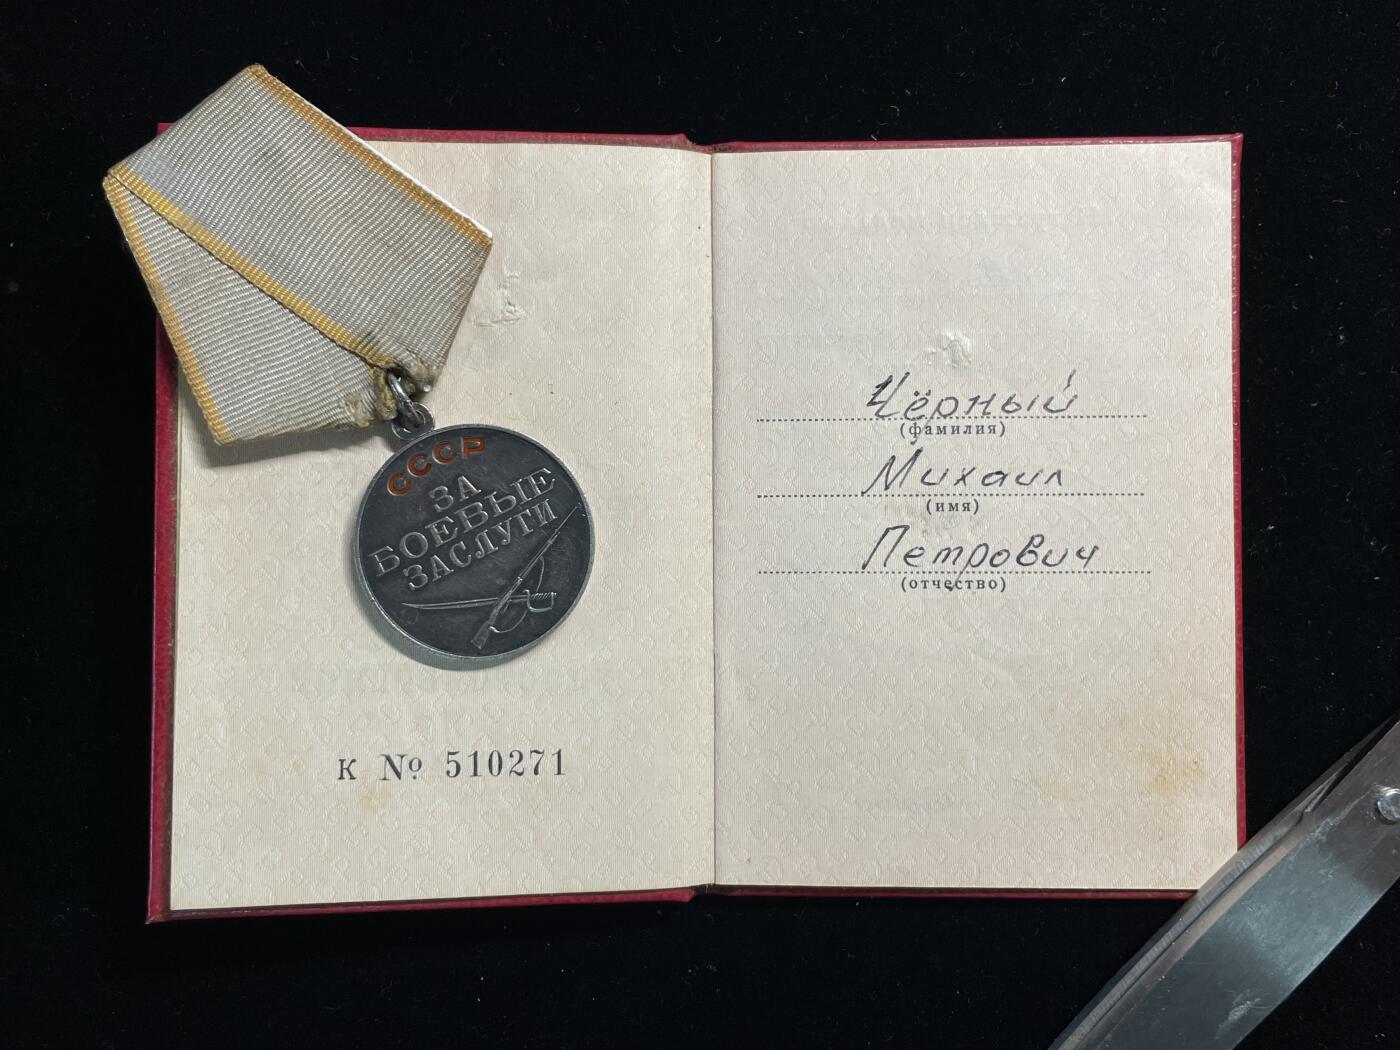 СССР
ЗА
БОЕВЫЕ
ЗАСЛУГИ
К № 510271
Чёрный
(фамилия)
Михаил
(имя)
Петрович
(отчество)